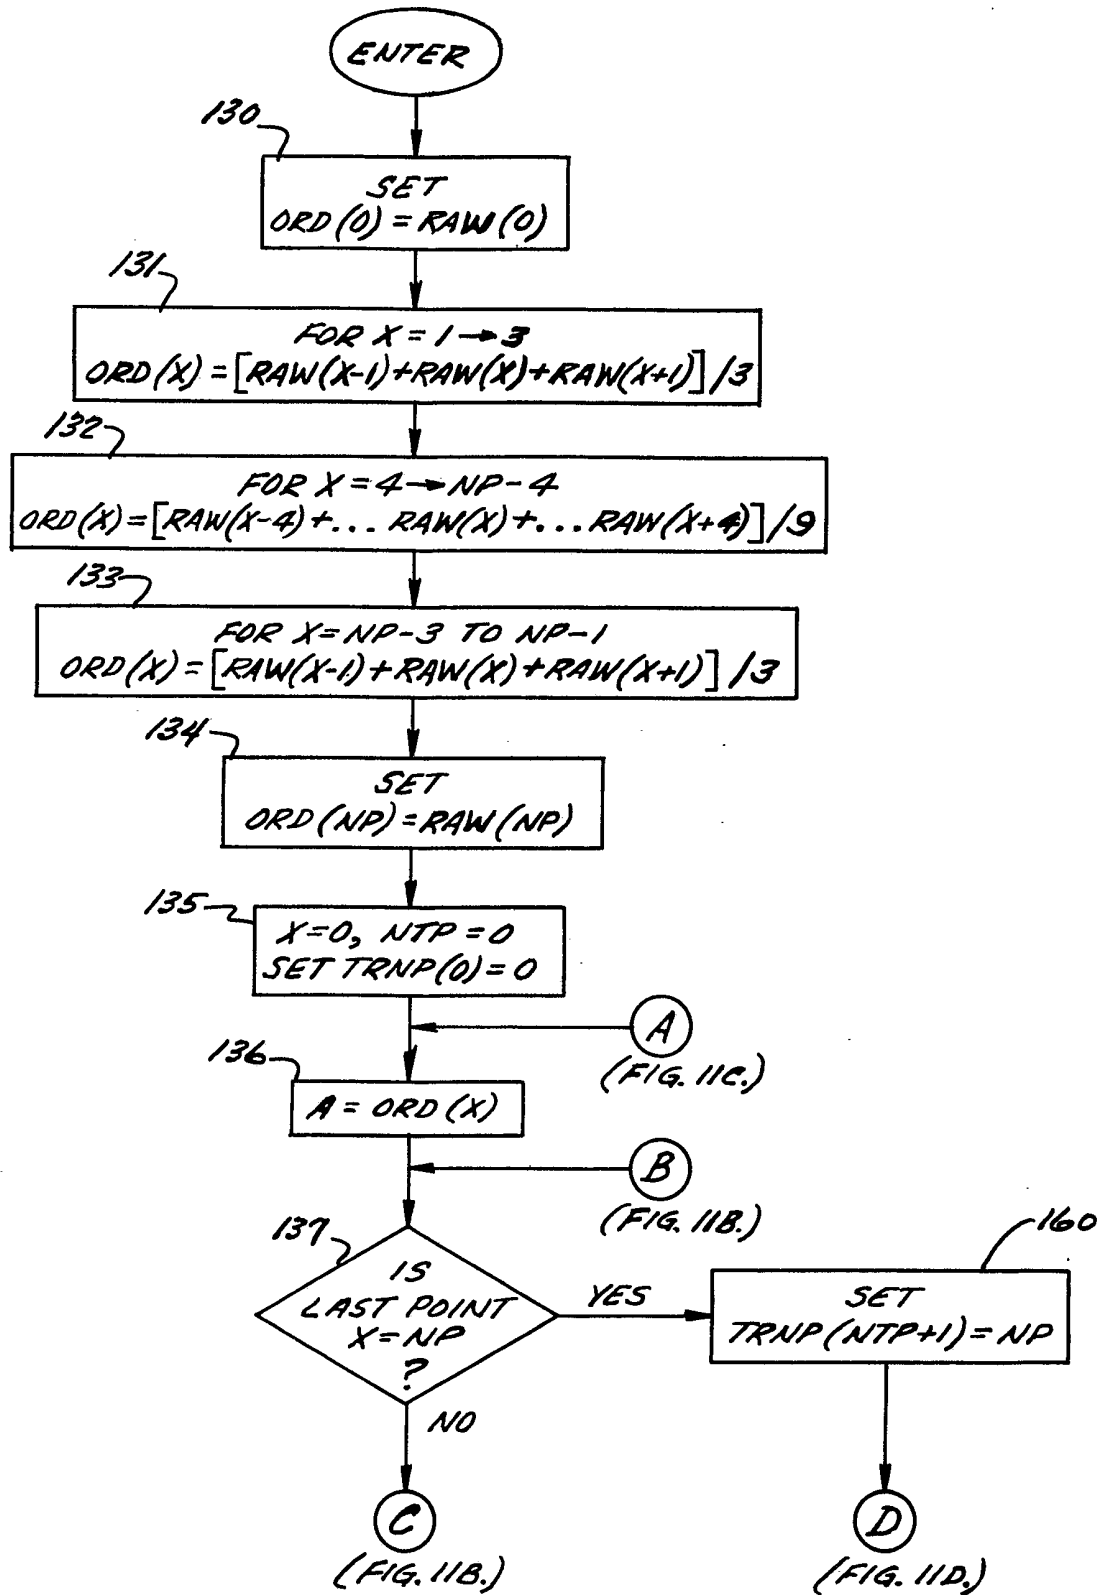 ENTER
130
SET
ORD(0) = RAW(0)
131
FOR X = 1→3
ORD(X) = [RAW(X-1)+RAW(X)+RAW(X+1)]/3
132
FOR X = 4→NP-4
ORD(X) = [RAW(X-4)+... RAW(X)+...RAW(X+4)]/9
133
FOR X=NP-3 TO NP-1
ORD(X) = [RAW(X-1)+RAW(X)+RAW(X+1)]/3
134
SET
ORD(NP) = RAW(NP)
135
X=0, NTP=0
SET TRNP(0)=0
A
(FIG. 11C.)
136
A = ORD(X)
B
(FIG. 11B.)
137
IS
LAST POINT
X=NP
?
YES
160
SET
TRNP(NTP+1)=NP
NO
C
(FIG. 11B.)
D
(FIG. 11D.)